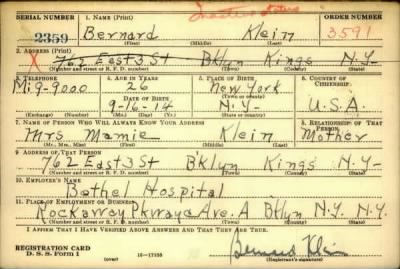 SERIAL NUMBER 1. NAME (Print) ORDER NUMBER
2359 Bernard Klein 3591
(First) (Middle) (Last)
2. ADDRESS (Print)
X 762 East 3 St Bklyn Kings N.Y.
(Number and street or R. F. D. number) (Town) (County) (State)
3. TELEPHONE 4. AGE IN YEARS 5. PLACE OF BIRTH 6. COUNTRY OF CITIZENSHIP
Mi9-9000 26 New York
DATE OF BIRTH (Town or county)
9-16-14 N.Y. U.S.A.
(Exchange) (Number) (Mo.) (Day) (Yr.) (State or country)
7. NAME OF PERSON WHO WILL ALWAYS KNOW YOUR ADDRESS 8. RELATIONSHIP OF THAT PERSON
Mrs Mamie Klein Mother
(Mr., Mrs., Miss) (First) (Middle) (Last)
9. ADDRESS OF THAT PERSON
762 East 3 St Bklyn Kings N.Y.
(Number and street or R. F. D. number) (Town) (County) (State)
10. EMPLOYER'S NAME
Bethel Hospital
11. PLACE OF EMPLOYMENT OR BUSINESS
Rockaway Pkway Ave. A Bklyn N.Y. N.Y.
(Number and street or R. F. D. number) (Town) (County) (State)
I AFFIRM THAT I HAVE VERIFIED ABOVE ANSWERS AND THAT THEY ARE TRUE.
REGISTRATION CARD
D. S. S. Form 1 (over) 16—17105 Bernard Klein